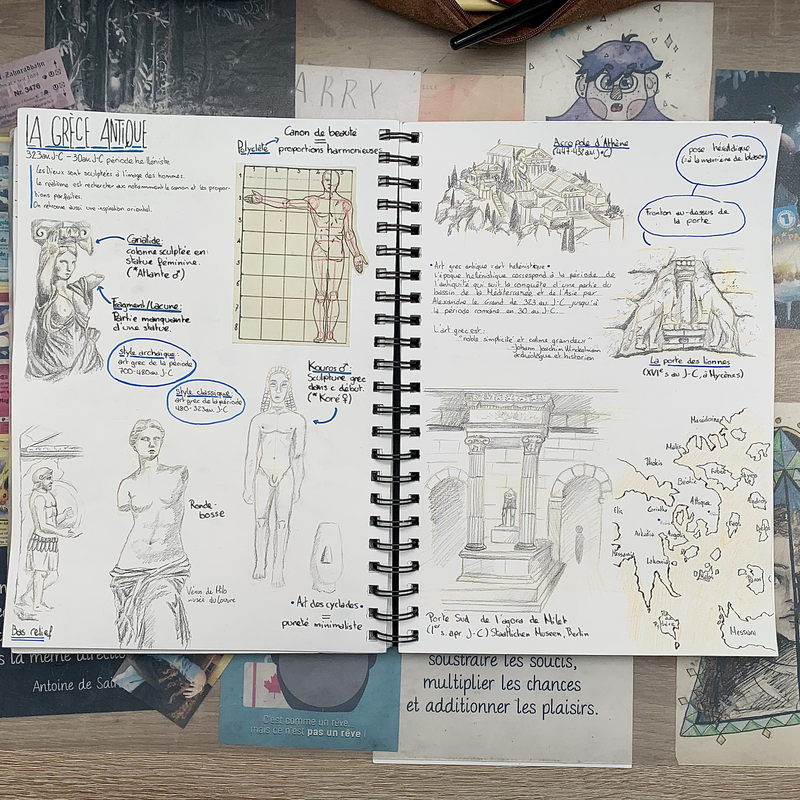 LA GRÈCE ANTIQUE
323 av J-C - 30 av. J-C période helléniste
Les Dieux sont sculptées à l'image des hommes.
Le réalisme est rechercher avec notamment le canon et les propor-
tions parfaites.
On retrouve aussi une inspiration oriental.
Canon de beauté
=
Polyclète
proportions harmonieuses
Cariatide:
colonne sculptée en
statue féminine.
(*Atlante ♂)
Fragment/Lacune:
Partie manquante
d'une statue.
Style archaïque:
art grec de la période
700-480 au J-C
Style classique:
art grec de la période
480-323 au. J-C
Kouros ♂:
Sculpture grec
dans c début.
(*Koré ♀)
Ronde-
bosse
Vénus de Milo
musée du Louvre
Bas relief
• Art des cyclades •
=
pureté minimaliste
Acropole d'Athène
(447-432 au J-C)
pose héraldique
(à la manière de blason)
Fronton au-dessus de
la porte
• Art grec antique = art hellénistique •
L'époque hellénistique correspond à la période de
l'antiquité qui suit la conquête d'une partie du
bassin de la Méditerranée et de l'Asie par
Alexandre le Grand de 323 au J-C jusqu'à
la période romaine en 30 au J-C.
L'art grec est:
"noble simplicité et calme grandeur"
-Johann Joachim Winckelmann
archéologue et historien
La porte des lionnes
(XVIe s au J-C, à Mycènes)
Porte Sud de l'agora de Milet
(1er s. apr J-C) Staatlichen Museen, Berlin
Macédoine
Phokis
Béotie
Attique
Elis
Corinthe
Arkadia
Messeni
Lakonia
Naxos
Delos
Paros
Messara
Zahnradbahn
Nr. 3476
ARRY
la même direction
Antoine de Sain
C'est comme un rêve...
mais ce n'est pas un rêve !
soustraire les soucis,
multiplier les chances
et additionner les plaisirs.